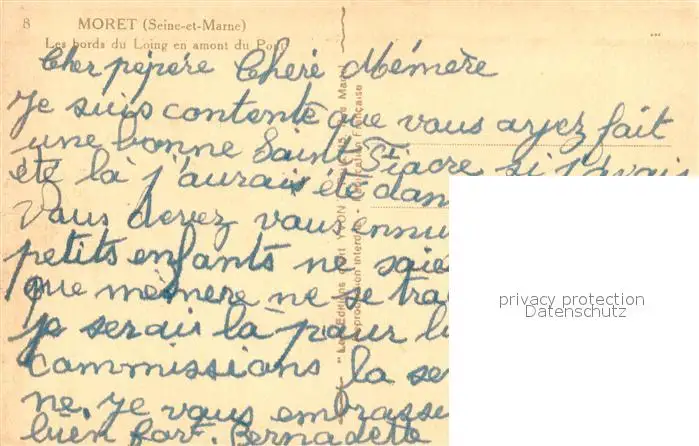 8 MORET (Seine-et-Marne)
Les bords du Loing en amont du Pont
Cher pépère Chère Mémère
Je suis contente que vous ayez fait
une bonne Saint Fiacre si j'avais
été là j'aurais été dan
Vous devez vous ennu
petits enfants ne soie
que mémère ne se tra
je serai là pour l
commissions la se
ne. Je vous embrasse
bien fort. Bernadette
privacy protection
Datenschutz